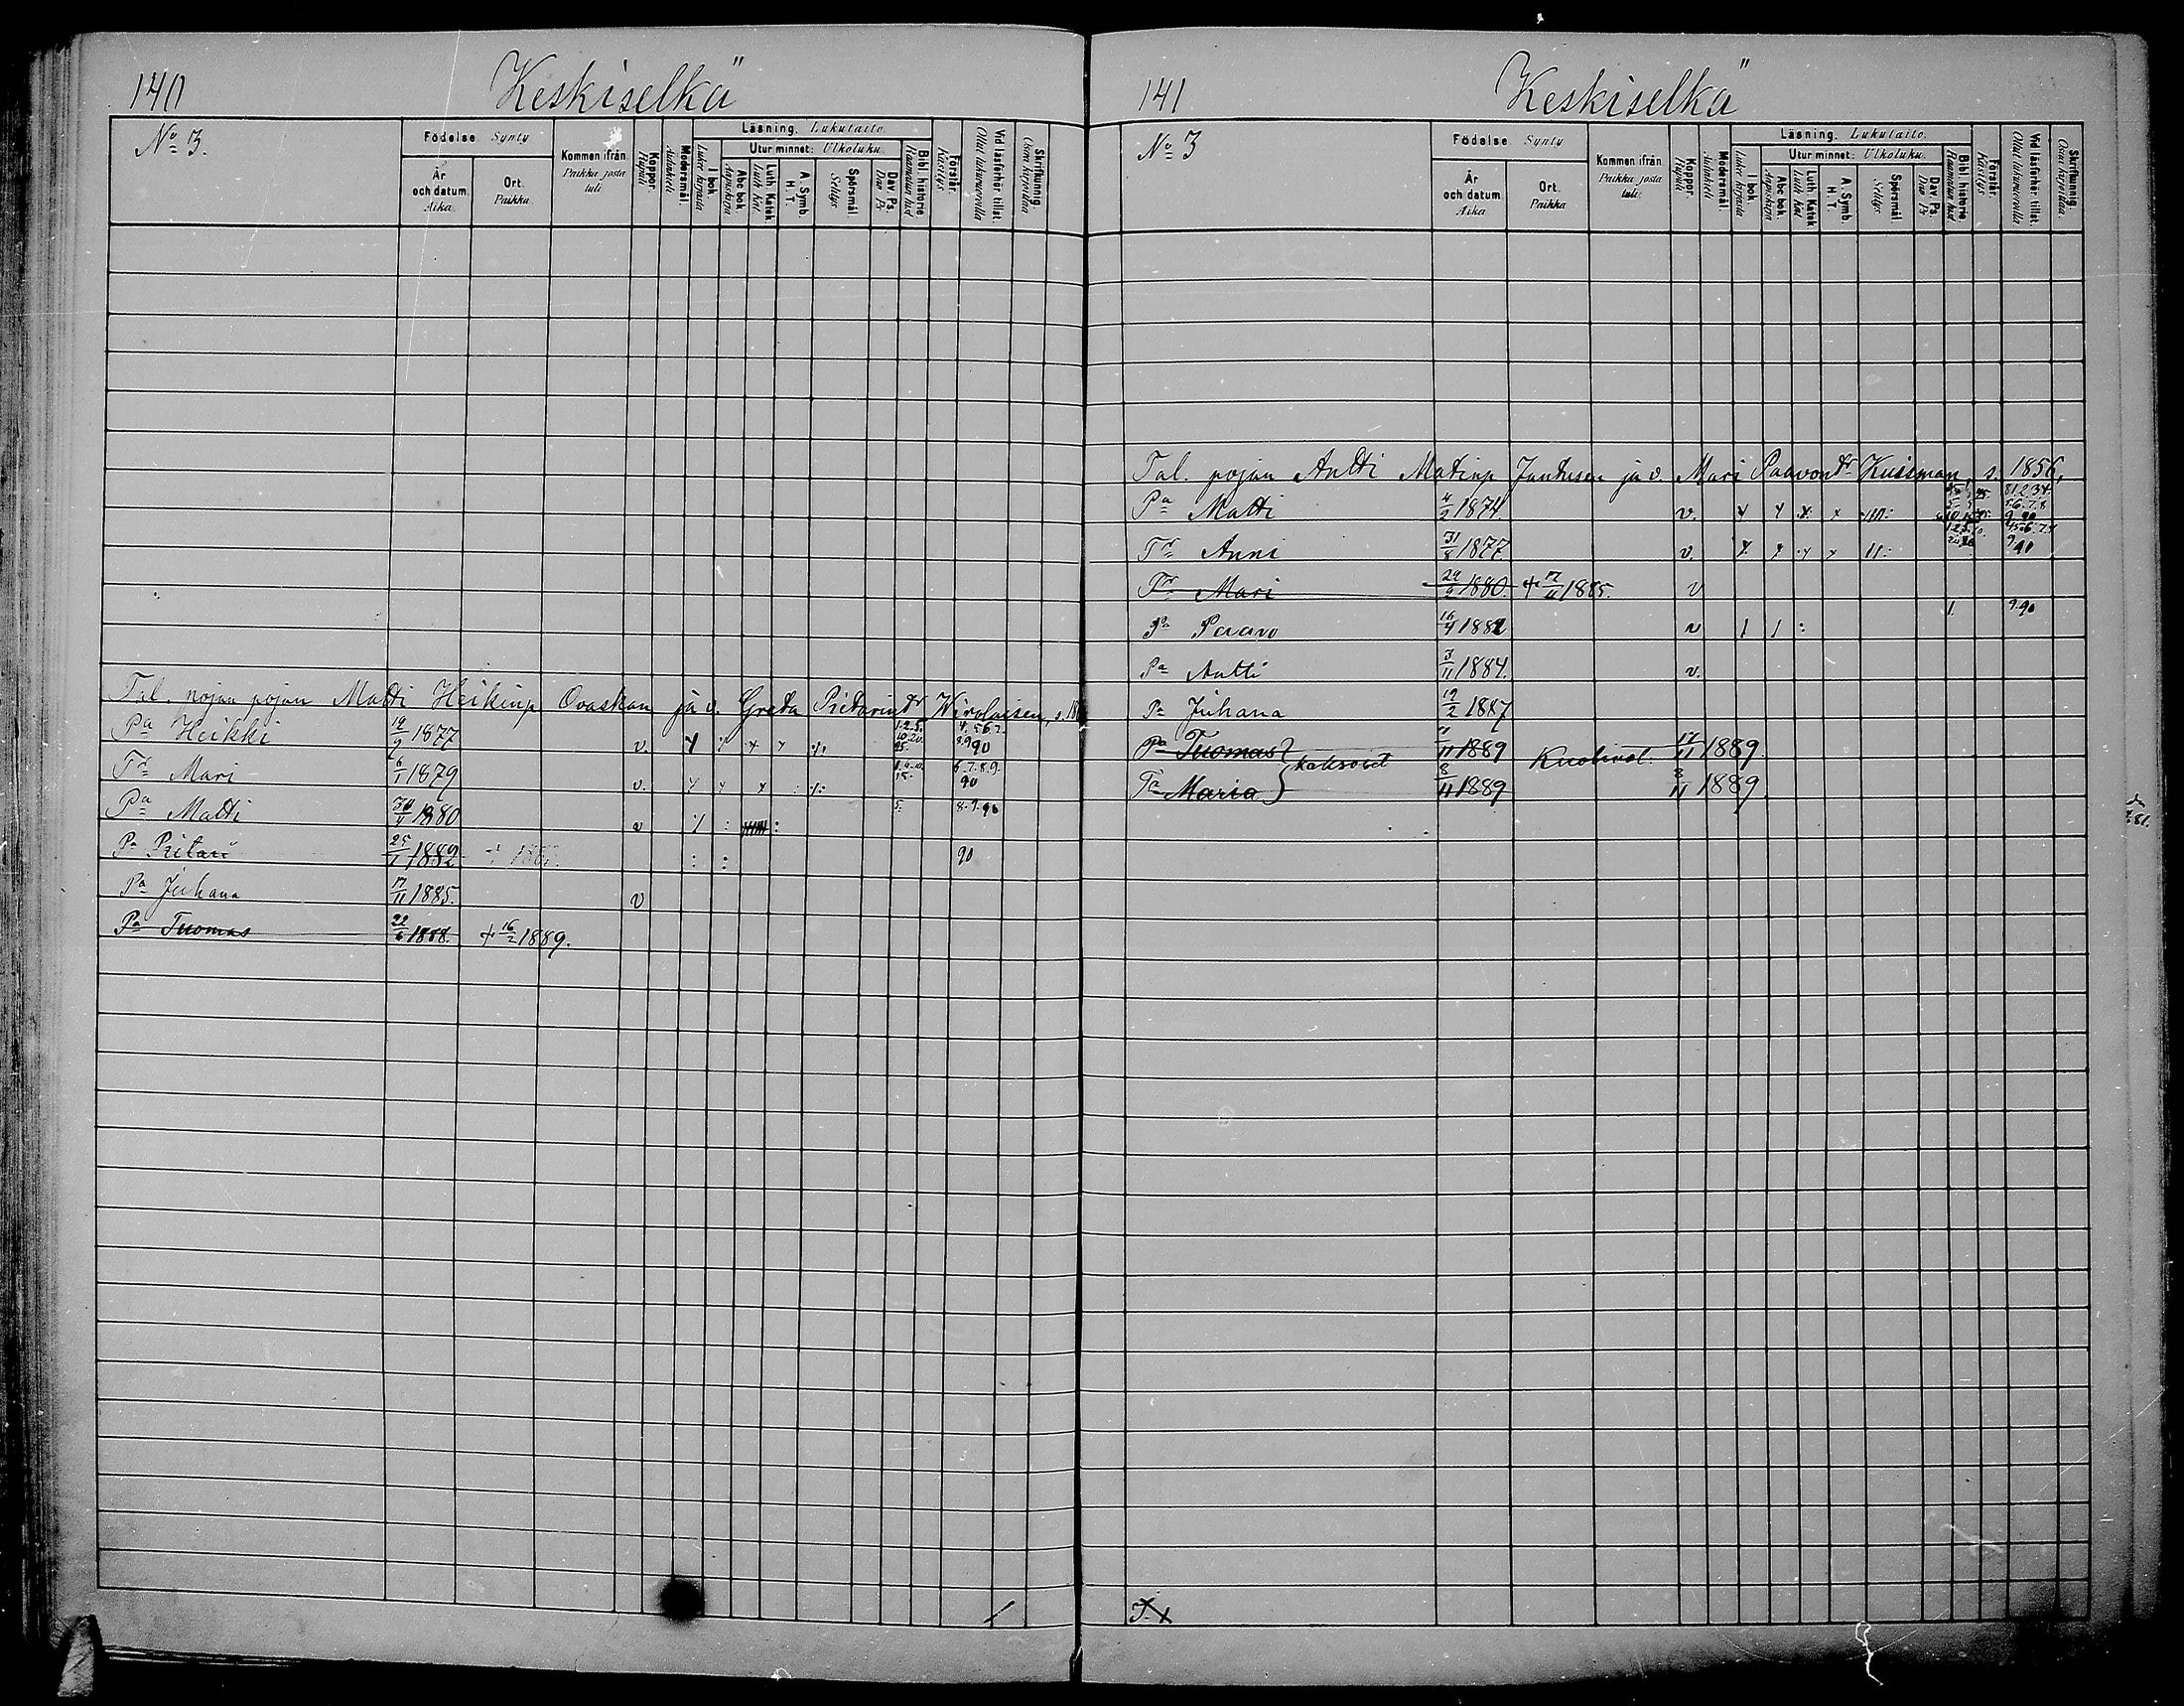 140 Keskiselkä
No 3.
Födelse. Synty
År och datum. Aika.
Ort. Paikka.
Kommen ifrån Paikka josta tuli
Koppor. Rupuli
Modersmål. Äidinkieli
Läsning. Lukutaito.
I bok. Lukee kirjasta
Utur minnet: Ulkoluku.
Abc bok. Aapiskirja
Luth. Katek. Luth. Kat.
A. Symb. H. T.
Spörsmål. Selitys
Dav. Ps. Dav. Ps
Bibl. historie Raamatun hist
Förstår. Käsitys
Vid läsförhör. tillst. Ollut lukuvuoroilla
Skrifkunnig. Osaa kirjoittaa
Tal. pojan pojan Matti Heikinp Ovaskan ja v. Greta Pietarintr Wirolaisen, s. 18
Pa Heikki 19/9 1877 v. 1.2.5. 10.20. 4.5.6.7. 8.9 90
Tr Mari 6/1 1879 v. 15. 6.7.8.9. 90
Pa Matti 30/4 1880 v 5. 8.9.90
Pa Pietari 25/1 1882 90
Pa Juhana 17/11 1885. v
Pa Tuomas 22/6 1888. + 16/2 1889.
141 Keskiselkä
No 3
Födelse Synty
År och datum Aika
Ort. Paikka
Kommen ifrån Paikka josta tuli.
Koppor. Rupuli
Modersmål. Äidinkieli
Läsning. Lukutaito.
I bok. Lukee kirjasta
Utur minnet: Ulkoluku.
Abc bok. Aapiskirja
Luth. Katek Luth. Kat
A. Symb. H. T.
Spörsmål. Selitys.
Dav. Ps. Dav. Ps
Bibl. historie Raamatun hist.
Förstår. Käsitys
Vid läsförhör. tillst. Ollut lukuvuoroilla
Skrifkunnig. Osaa kirjoittaa
Tal. pojan Antti Matinp Jantusen ja v. Mari Paavontr Kuisman, s. 1856,
Pa Matti 4/2 1874. v. 81.2.3.4. 5.6.7.8 9 90
Tr Anni 31/8 1877. v. 9 90
Tr Mari 29/9 1880. + 17/11 1885. v
Pa Paavo 16/4 1882 v 1. 9.90
Pa Antti 3/11 1884. v.
Pa Juhana 19/2 1887
Pa Tuomas } kaksoset /11 1889 Kuolivat. 17/11 1889.
Tr Maria 8/11 1889 8/11 1889.